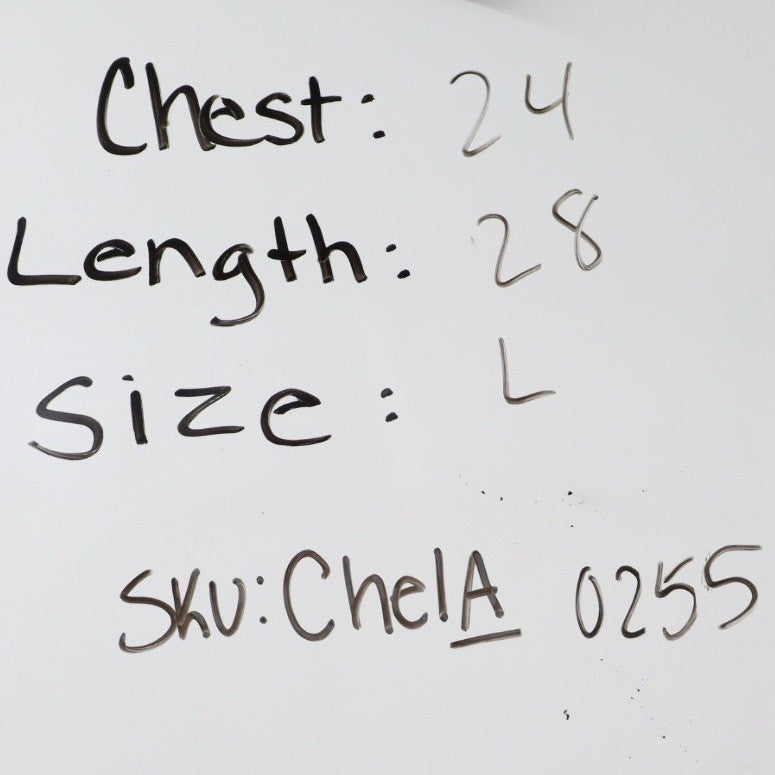 Chest: 24
Length: 28
Size: L
SKU: ChelA 0255